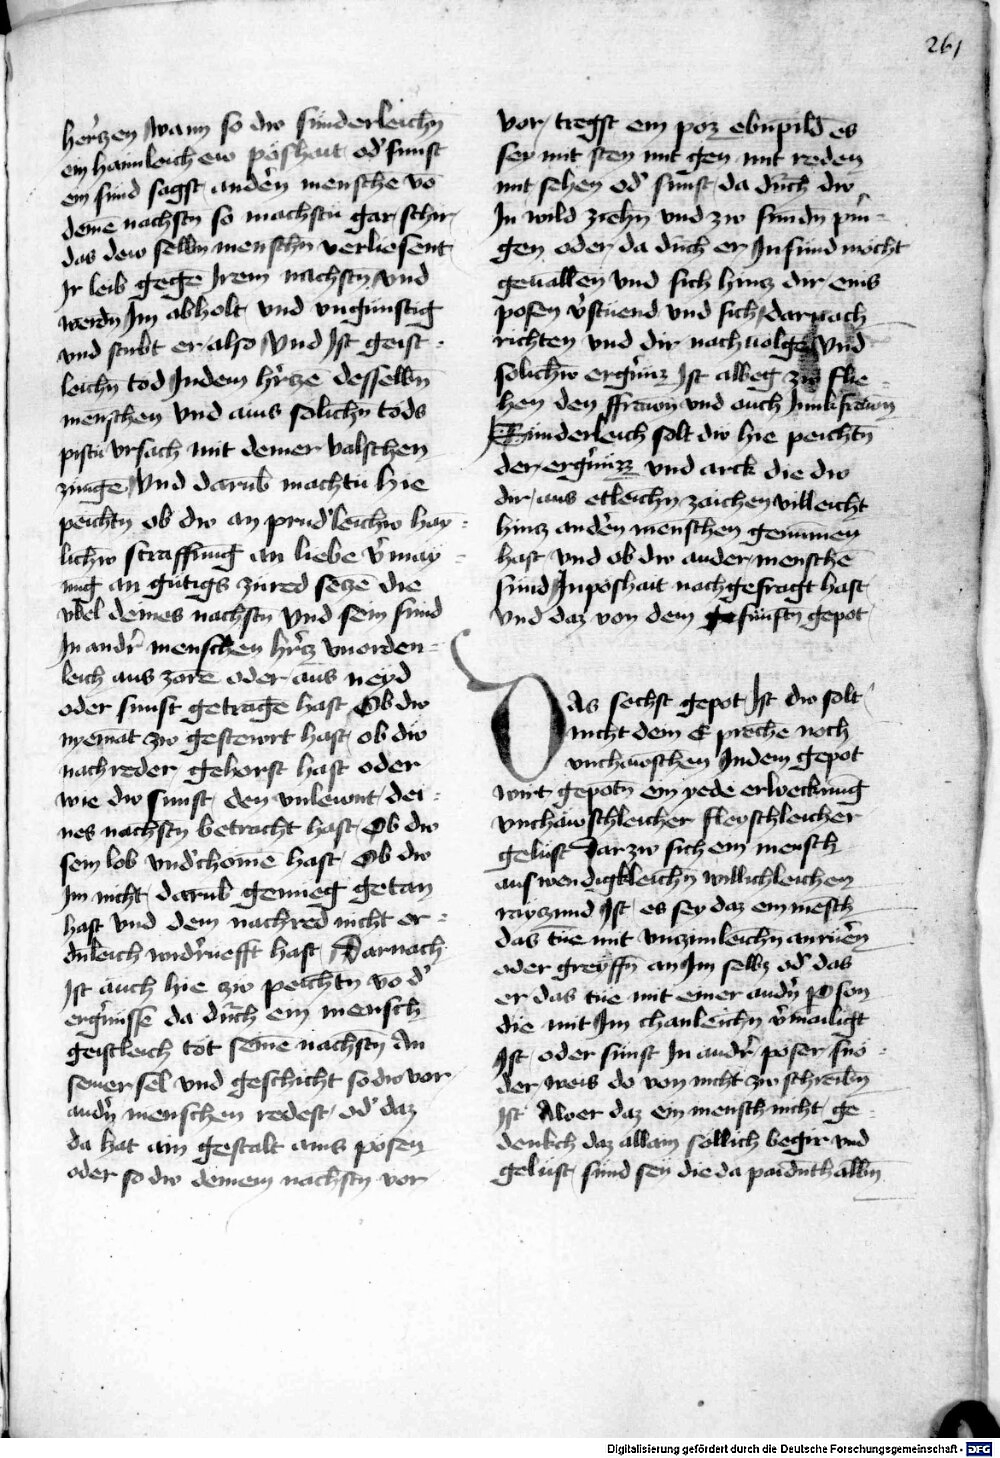 261
herczen Wann so dw sunderleichn̄
ein haimleichew poshait od' sunst
ein sünd sagst andern̄ mensche vō
deinē nachstn̄ so machstu gar schir
das dew selbn̄ menschn̄ verliesent
Ir leib gegē Irem nachstn̄ vnd
werdn̄ Im abholt vnd vngünstig
vnd stirbt er also Vnd Ist geist-
leichn̄ tod Indem hr̄czē desselbn̄
menschen vnd ains solichn̄ tods
pistu vrsach mit deiner valschen
zunge Vnd darub̄ machtu hie
peichtn̄ ob dw an prud'leichew hay-
lichew straffung an liebe v'may-
nūg an gütigs züred seczē die
vbel deines nachstn̄ vnd sein sünd
In andr̄ menschen hr̄cz vnorden-
leich aus zorē oder aus neyd
oder sunst getragē hast Ob dw
nyemāt zw gestewrt hast ob dw
nachreder gehorst hast oder
wie dw sunst den vnlewnt dei-
nes nachstn̄ betracht hast Ob dw
sein lob vnd'chomē hast Ob dw
Im nicht darub̄ genueg getan
hast vnd dem nachred nicht er-
dn̄leich widr̄uefft hast Darnach
Ist auch hie zw peichtn̄ vō d'
ergr̄nussē da durch ein mensch
geistleich tot seinē nachstn̄ An
seiner sel vnd geschicht so dw vor
andn̄ menschen redest od' daz
da hat ain gestalt ains pösen
oder so dw deinem nachstn̄ vor
vor tregst ein poz ebnpild es
sey mit sten mit gen mit reden
mit sehen od' sunst da durch dw
In wild ziehn̄ vnd zw sundn̄ prin-
gen oder da durch er In sünd möcht
geuallen vnd sich hincz dir eins
posen v'stüend vnd sich darnach
richten vnd dir nachuolgē Vnd
solichew ergr̄nūz Ist albeg zw flie-
hen den ffrawn̄ vnd auch Junkfrawn̄
Sunderleich solt dw hie peichtn̄
der ergr̄nüzz vnd arck die dw
dir aus etleichn̄ zaichen villeicht
hincz andern̄ menschen genūmen
hast vnd ob dw ander menschē
sünd In poshait nachgefragt hast
Vnd daz von dem fünftn̄ gepot
Das sechst gepot Ist dw solt
nicht dein E prechē noch
vnchäwschen Indem gepot
wirt gepotn̄ ein yede erweckūng
vnchäwschleicher fleyschleicher
gelüst Darzw sich ein mensch
auswendigkleichn̄ willichleichen
rayczund Ist es sey daz ein mēsch
das tüe mit vnzimleichn̄ anrüern̄
oder greyffn̄ an Im selbs od' das
er das tüe mit einer andn̄ pson
die mit Im chanleichn̄ v'mailigt
Ist oder sunst In andr̄ pöser snö-
der weis do von nicht zw schreibn̄
Ist Aber daz ein mensch nicht ge-
denkch daz allain söllich begir vnd
gelüst sünd sey die da paidnthalbn̄
Digitalisierung gefördert durch die Deutsche Forschungsgemeinschaft - DFG